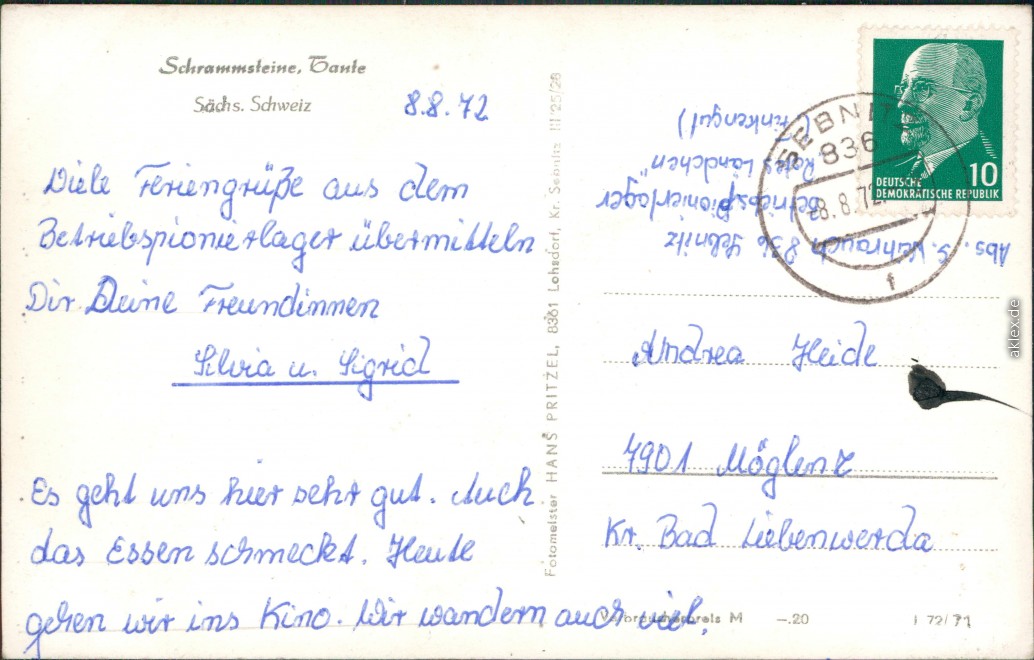 Schrammsteine, Tante
Sächs. Schweiz
8.8.72
Viele Feriengrüße aus dem
Betriebspionierlager übermitteln
Dir Deine Freundinnen
Silvia u. Sigrid
Es geht uns hier sehr gut. Auch
das Essen schmeckt. Heute
gehen wir ins Kino. Wir wandern auch viel.
Fotomeister HANS PRITZEL, 8361 Lohsdorf, Kr. Sebnitz III/25/28
Abs. S. 836 Sebnitz
Betriebspionierlager
"Rotes Ländchen"
(Finkengut)
SEBNITZ
836
-8.8.72
f
DEUTSCHE
DEMOKRATISCHE REPUBLIK
10
Andrea Heide
7901 Möglenz
Kr. Bad Liebenwerda
Verbraucherpreis M -.20
I 72/71
aklex.de